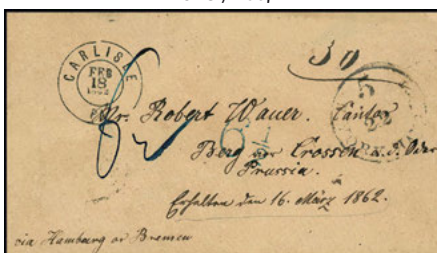 CARLISLE
FEB
18
1862
30
5
22
Mr. Robert Wauer. Cantor
Berg vor Crossen a. Oder
Prussia.
Erhalten den 16. März 1862.
via Hamburg or Bremen